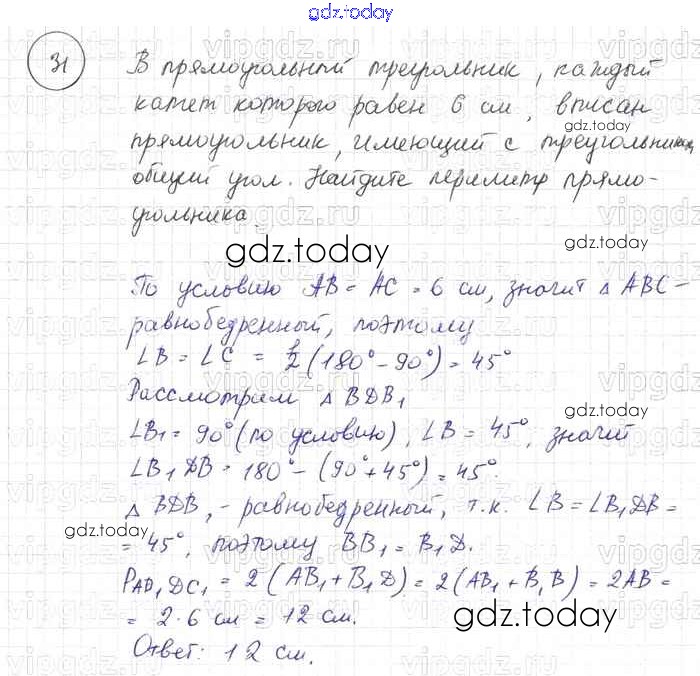 gdz.today
31
В прямоугольный треугольник, каждый
катет которого равен 6 см, вписан
gdz.today
прямоугольник, имеющий с треугольником
общий угол. Найдите периметр прямо-
угольника.
gdz.today
По условию AB = AC = 6 см, значит △ ABC -
равнобедренный, поэтому
∠B = ∠C = 1/2 (180° - 90°) = 45°
Рассмотрим △ BDB₁
gdz.today
∠B₁ = 90° (по условию), ∠B = 45°, значит
∠B₁DB = 180° - (90° + 45°) = 45°.
△ BDB₁ - равнобедренный, т.к. ∠B = ∠B₁DB =
gdz.today
= 45°, поэтому BB₁ = B₁D.
P AD₁DC₁ = 2(AB₁ + B₁D) = 2(AB₁ + B₁B) = 2AB =
= 2·6 см = 12 см.
gdz.today
Ответ: 12 см.